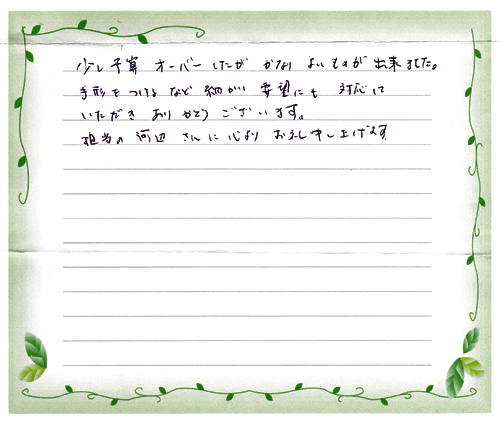 少し予算オーバーしたが かなり よいものが出来ました。
手形をつけるなど細かい要望にも 対応して
いただき ありがとうございます。
担当の 河辺 さんに心より お礼申し上げます